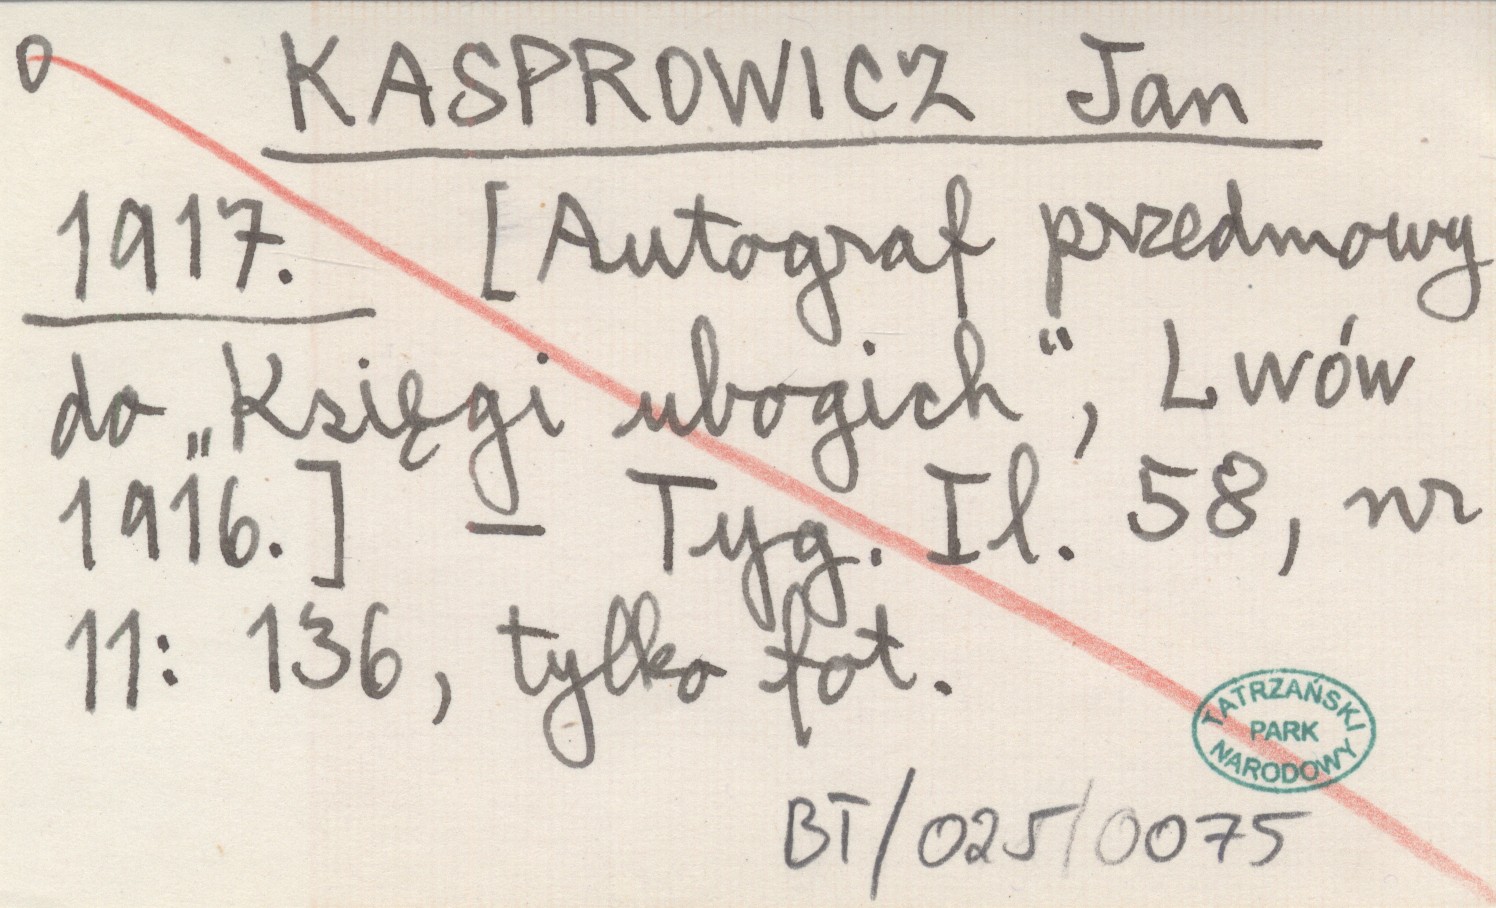 0 KASPROWICZ Jan
1917. [Autograf przedmowy
do „Księgi ubogich“, Lwów
1916.] – Tyg. Il. 58, nr
11: 136, tylko fot.
TATRZAŃSKI
PARK
NARODOWY
BT/025/0075